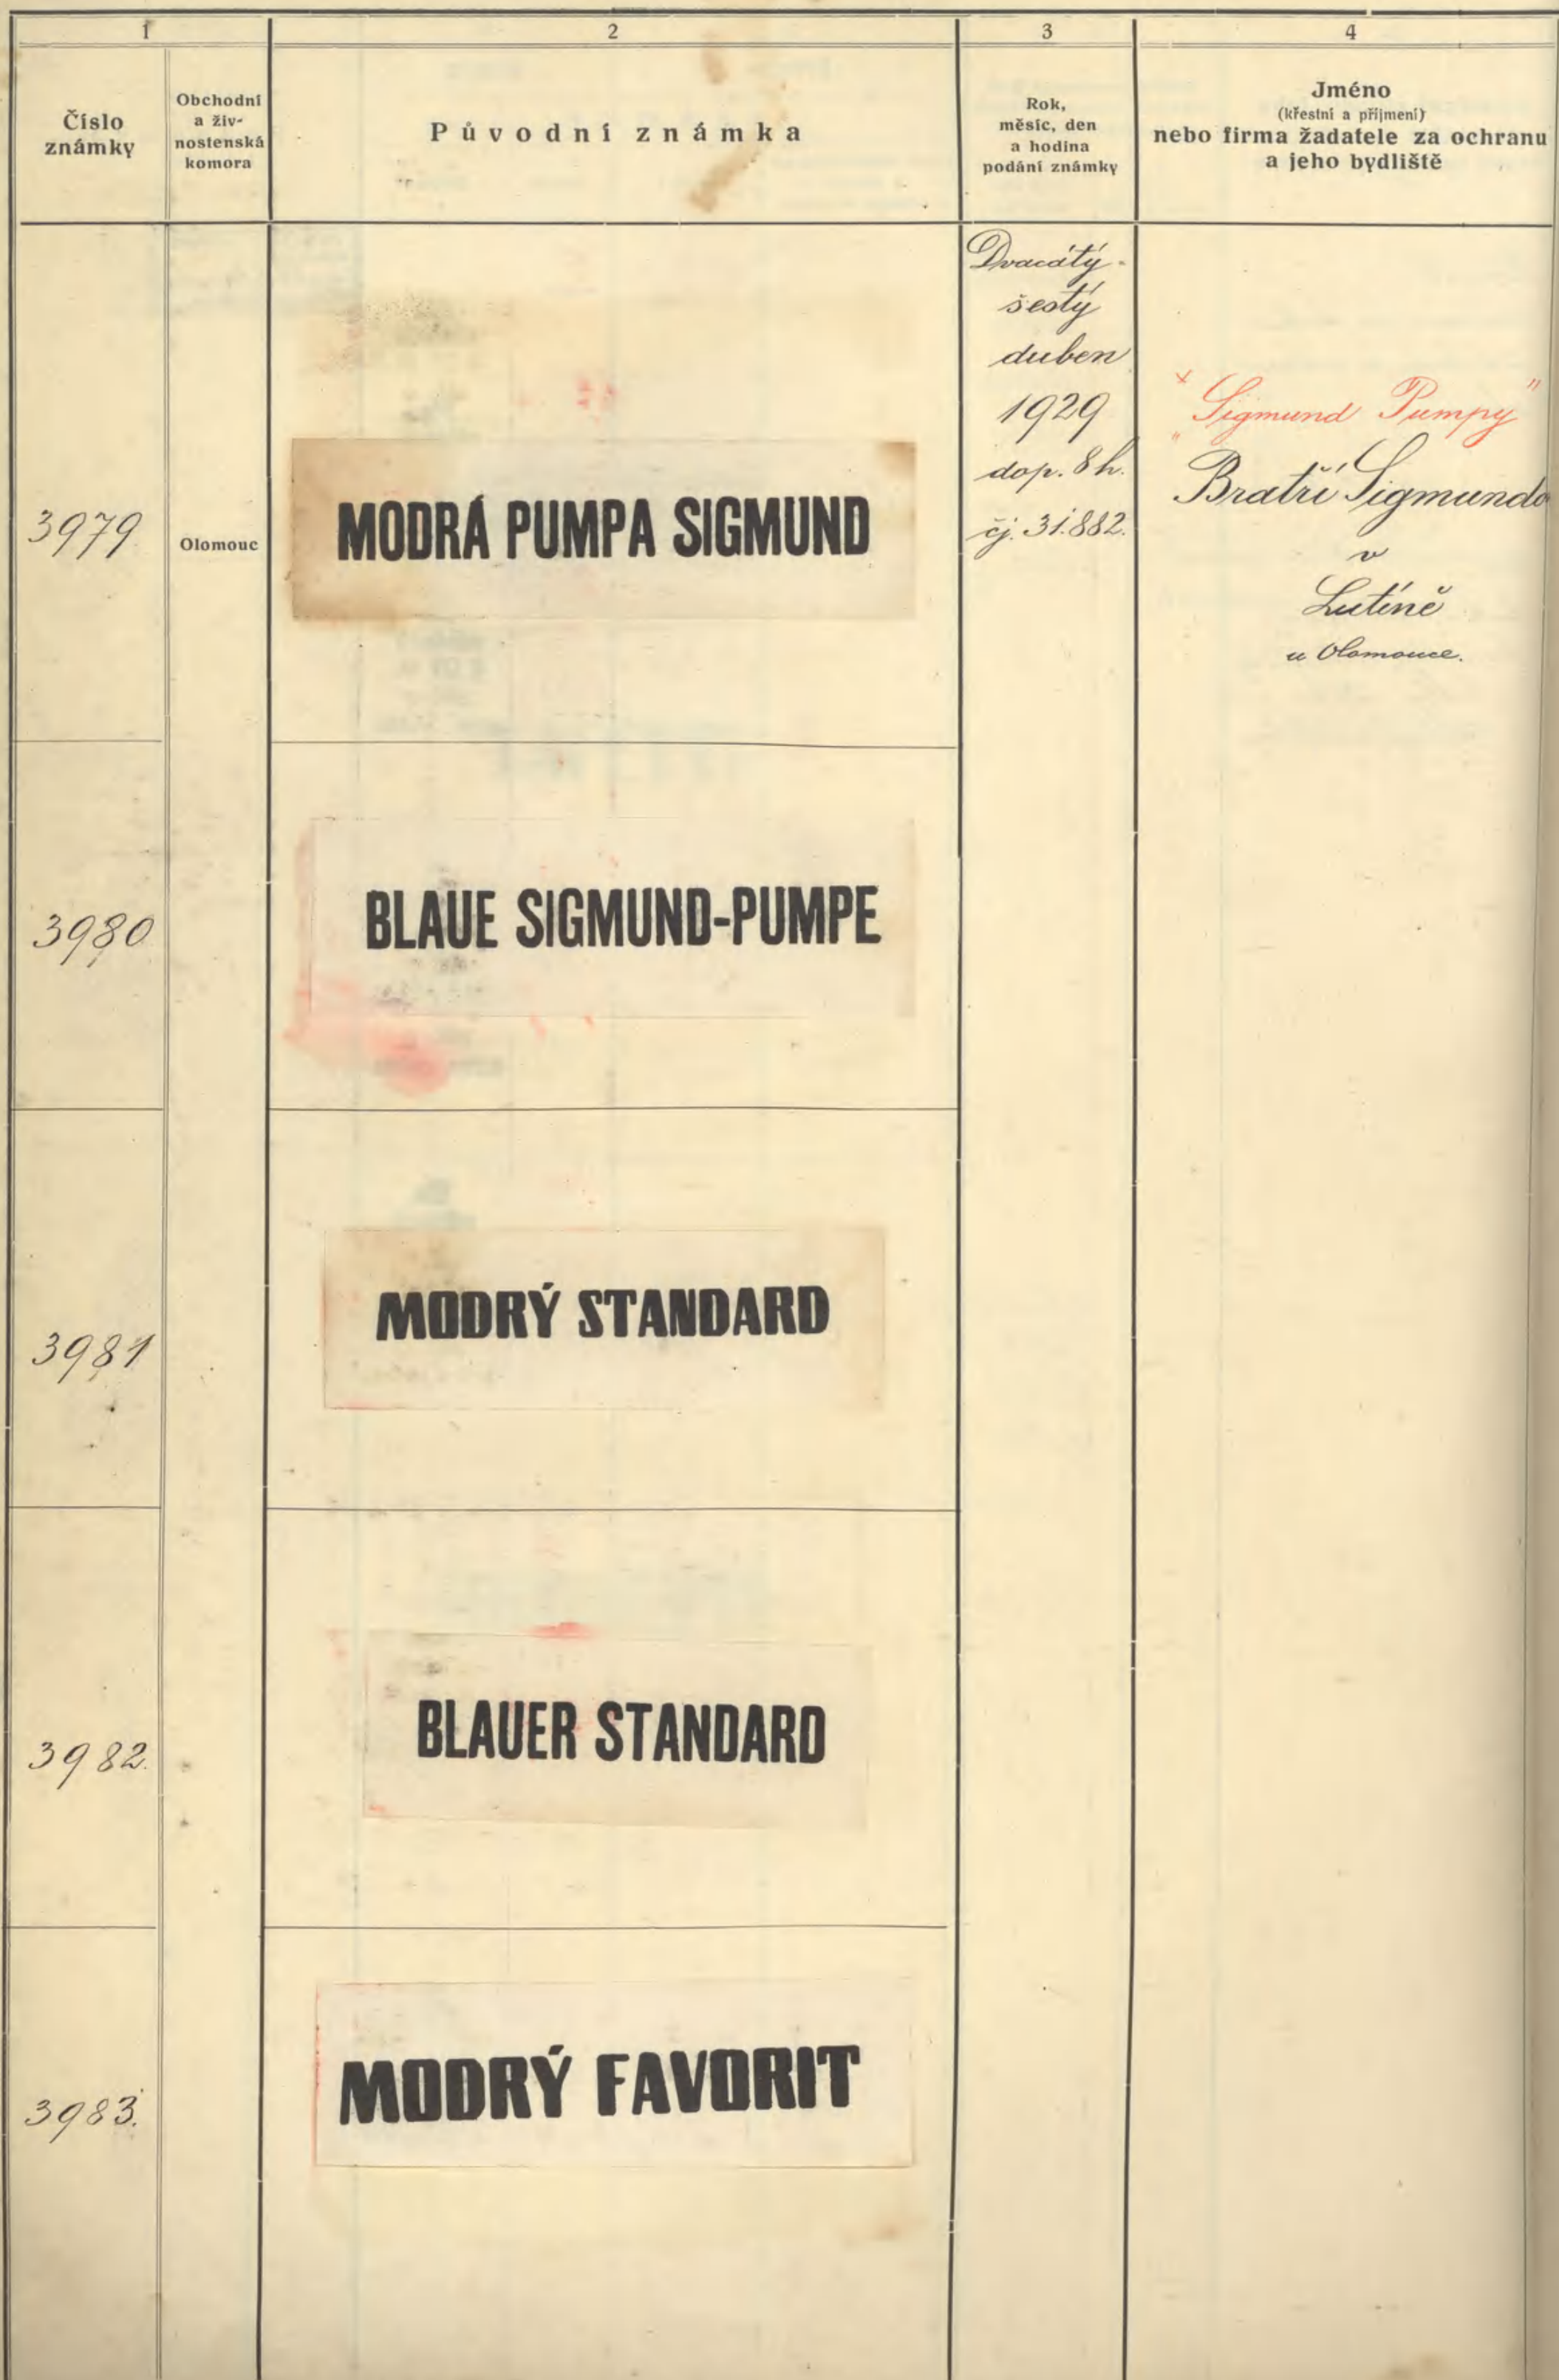 1
2
3
4
Číslo
známky
Obchodní
a živ-
nostenská
komora
Původní známka
Rok,
měsíc, den
a hodina
podání známky
Jméno
(křestní a příjmení)
nebo firma žadatele za ochranu
a jeho bydliště
3979.
Olomouc
MODRÁ PUMPA SIGMUND
Dvacátý-
šestý
duben
1929
dop. 8 h.
čj. 31.882.
"Sigmund Pumpy"
Bratří Sigmundo
v
Lutíně
u Olomouce.
3980
BLAUE SIGMUND-PUMPE
3981
MODRÝ STANDARD
3982.
BLAUER STANDARD
3983.
MODRÝ FAVORIT